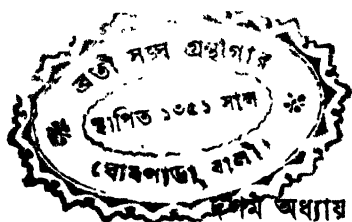 ব্রতী সংঘ গ্রন্থাগার
স্থাপিত ১৩৫১ সাল
ঘোষপাড়া, বালী
দশম অধ্যায়